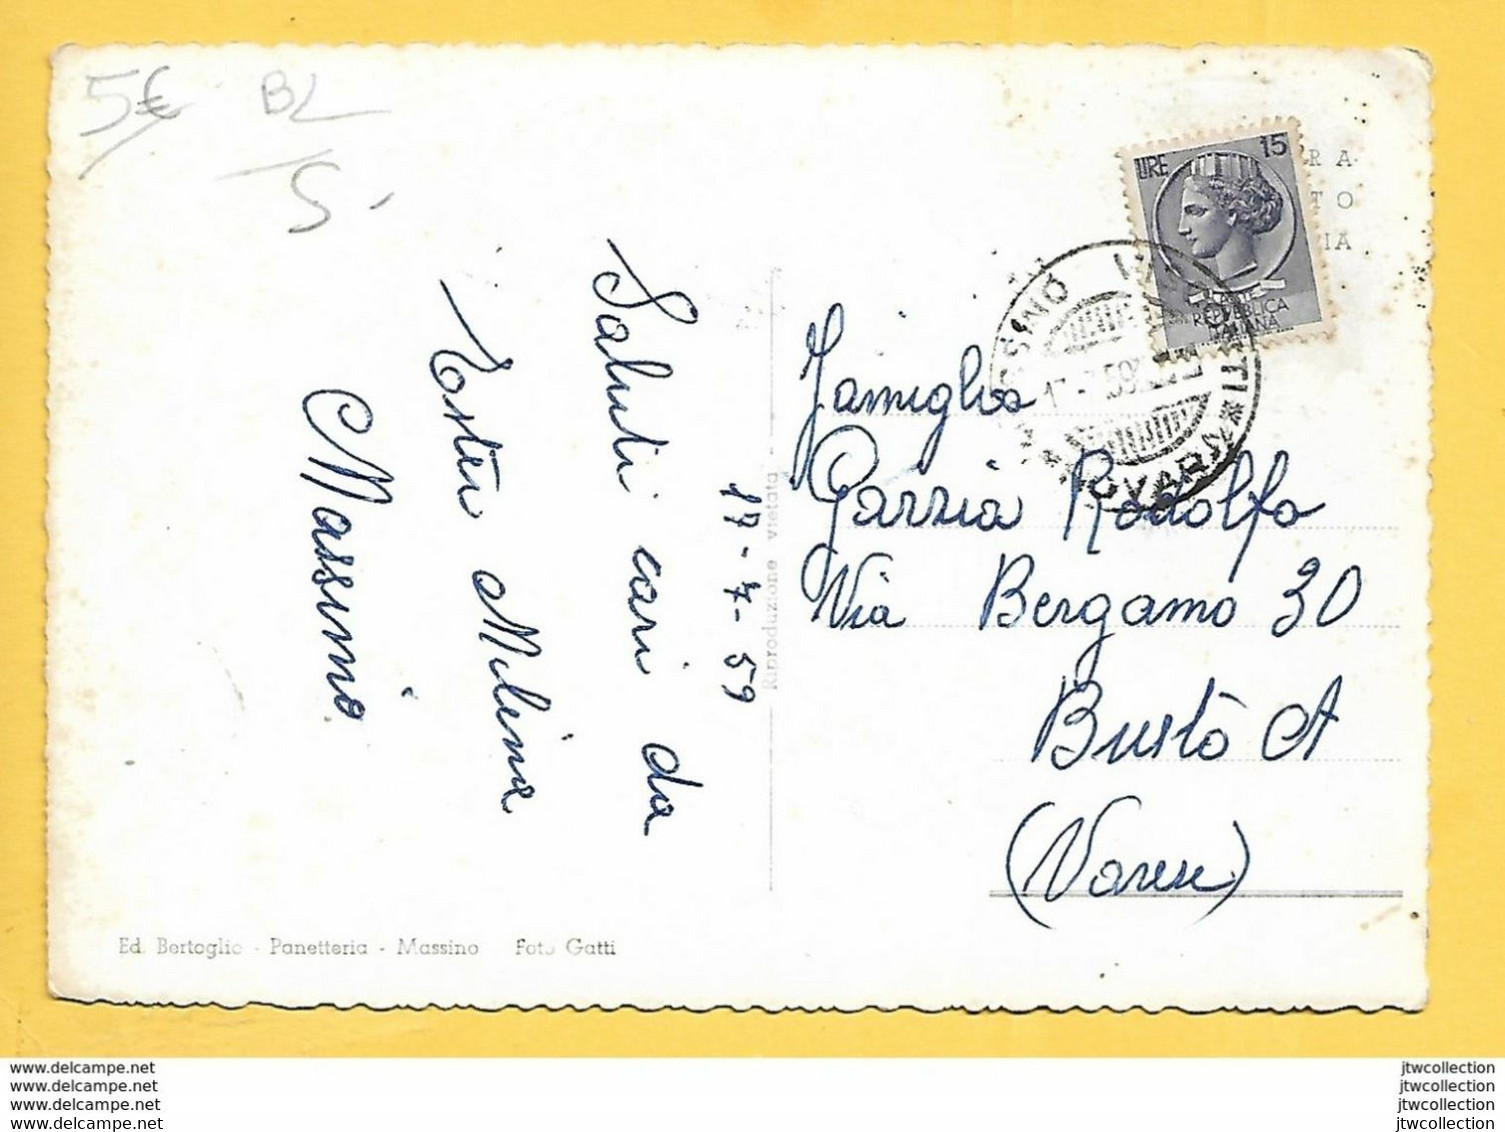 5€ BL
5
LIRE 15
REPVBBLICA
ITALIANA
VERA
FOTO
Saluti cari da
Ester Milena
Massimo
17-7-59
Riproduzione vietata
Famiglia
Garzia Rodolfo
Via Bergamo 30
Busto A
(Varese)
Ed. Bertoglio - Panetteria - Massino Foto Gatti
www.delcampe.net
www.delcampe.net
www.delcampe.net
www.delcampe.net
jtwcollection
jtwcollection
jtwcollection
jtwcollection